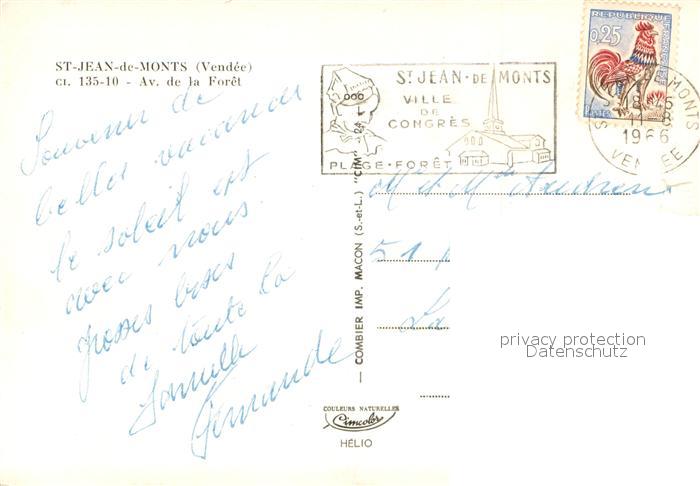 ST-JEAN-de-MONTS (Vendée)
Cl. 135-10 - Av. de la Forêt
Souvenir de
belles vacances
le soleil est
avec nous.
grosses bises
de toute la
famille
Fernande
— COMBIER IMP. MACON (S.-et-L.) "CIM"
COULEURS NATURELLES
Cimcolor
HÉLIO
ST JEAN-DE MONTS
VILLE
DE
CONGRÈS
PLAGE-FORÊT
0,25
REPUBLIQUE FRANÇAISE
18H45
11-8
1966
VENDEE
MONTS
Mr et Mme
51
La
privacy protection
Datenschutz